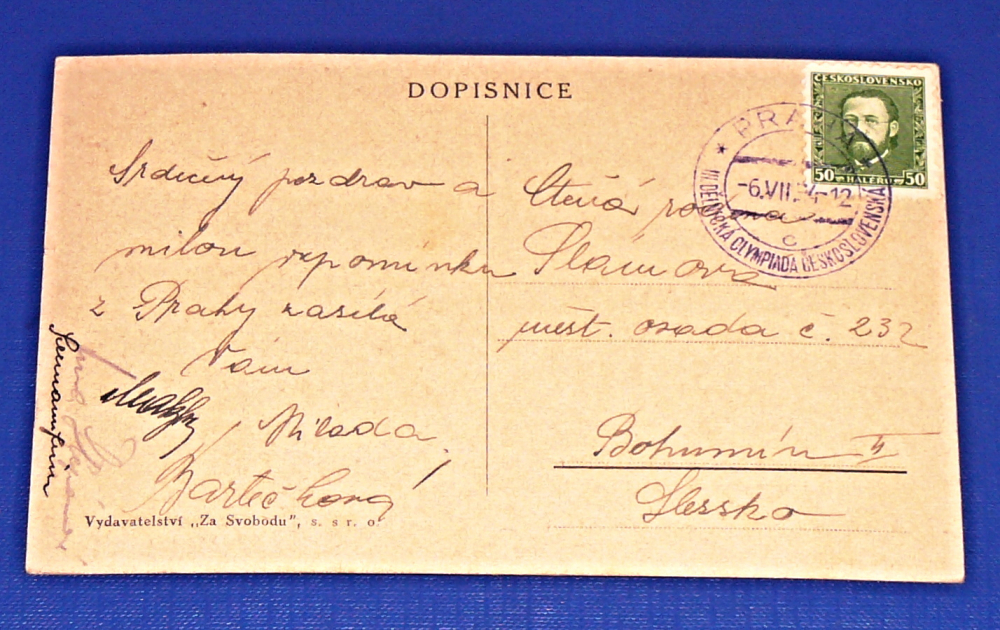 DOPISNICE
Srdečný pozdrav a
milou vzpomínku
z Prahy zasílá
Vám
Milada
Bartečková
Vydavatelství „Za Svobodu", s. s r. o.
ČESKOSLOVENSKO
50 HALÉŘŮ 50
PRAHA
-6.VII.34-12
C
III. DĚLNICKÁ OLYMPIADA ČESKOSLOVENSKÁ
Ctěná rodina
Slámova
měst. osada č. 232
Bohumín II
Slezsko